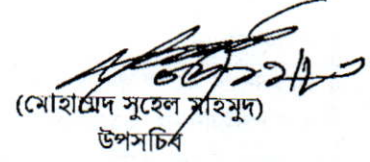 (মোহাম্মেদ সুহেল মাহমুদ)
উপসচিব